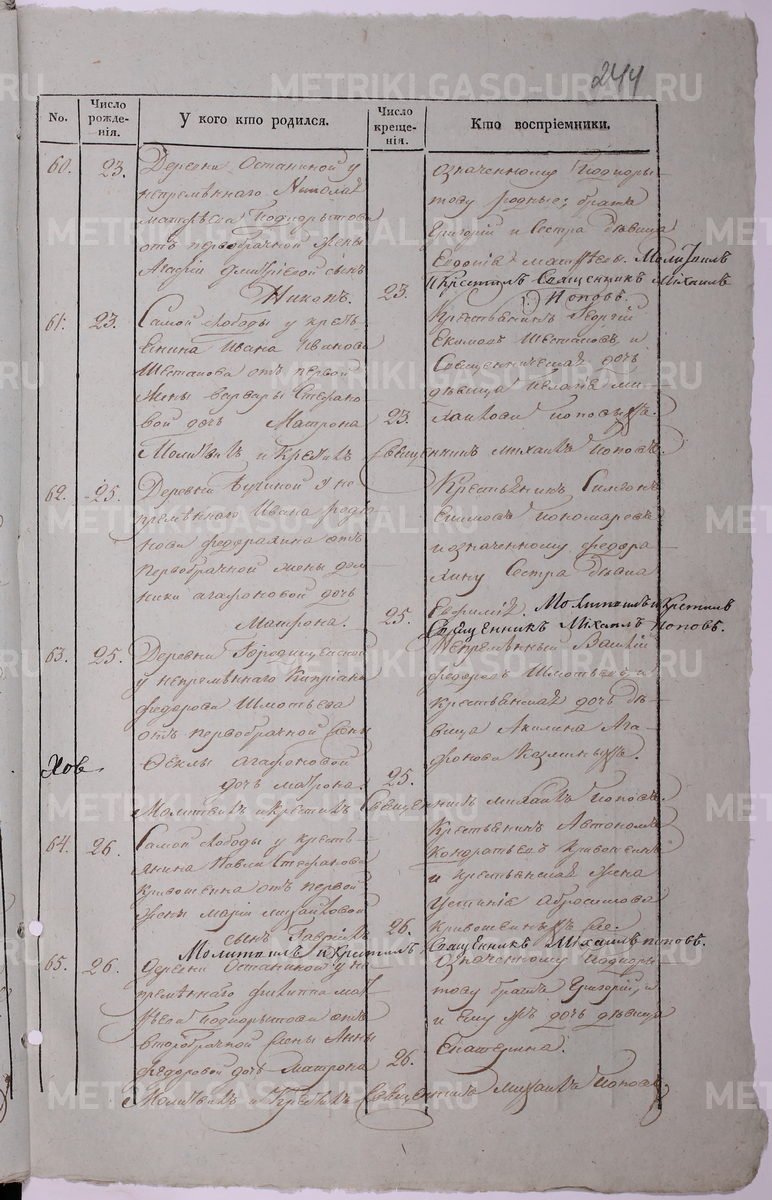 244
No. Число рожденія. У кого кто родился. Число крещенія. Кто воспріемники.
60. 23. Деревни Останиной у
непремѣннаго Николая
Матвѣева Подкорытова
отъ первобрачной жены
Агафіи Дмитріевой сынъ
Никонъ.
23.
означенному Подкоры
тову родные: братъ
Григорій и Сестра дѣвица
Евдокія Матвѣевы. Молитвилъ
и Крестилъ Священникъ Михаилъ
Поповъ.
61. 23. Самой слободы у кресть
янина Ивана Иванова
Шестакова отъ первой
жены Варвары Стефано
вой дочь Матрона
23.
Крестьянинъ Георгій
Екимовъ Шестаковъ и
Священническая дочь
дѣвица Пелагія Ми
хайлова Попова.
Молитвилъ и Крестилъ Священникъ Михаилъ Поповъ.
62. 25. Деревни у не
премѣннаго Ивана Родіо
нова отъ
первобрачной жены Дом
ники Агафоновой дочь
Матрона.
25.
Крестьянинъ Симеонъ
Пономаревъ
и означенному
Сестра дѣвица
Евфимія. Молитвилъ и Крестилъ
Священникъ Михаилъ Поповъ.
63. 25. Деревни Городищенской
у непремѣннаго Кипріана
Федорова
отъ первобрачной жены
Ѳеклы Агафоновой
дочь Матрона.
25.
Непремѣнный Василій
Федоровъ и
крестьянская дочь дѣ
вица Акилина Ага
фонова
Молитвилъ и Крестилъ Священникъ Михаилъ Поповъ.
64. 26. Самой слободы у кресть
янина Павла Стефанова
Кривошеина отъ первой
жены Маріи Михайловой
сынъ Гавріилъ
26.
Крестьянинъ Автономъ
Кондратьевъ Кривошеинъ
и крестьянская жена
Устинія Абросимова
Молитвилъ и Крестилъ Священникъ Михаилъ Поповъ.
65. 26. Деревни Останиной у не
премѣннаго Филиппа Мат
вѣева Подкорытова отъ
второбрачной жены Анны
Федоровой дочь Матрона
26.
означенному Подкоры
тову братъ Григорій, и
и ему жъ дочь дѣвица
Екатерина.
Молитвилъ и Крестилъ Священникъ Михаилъ Поповъ
METRIKI.GASO-URAL.RU